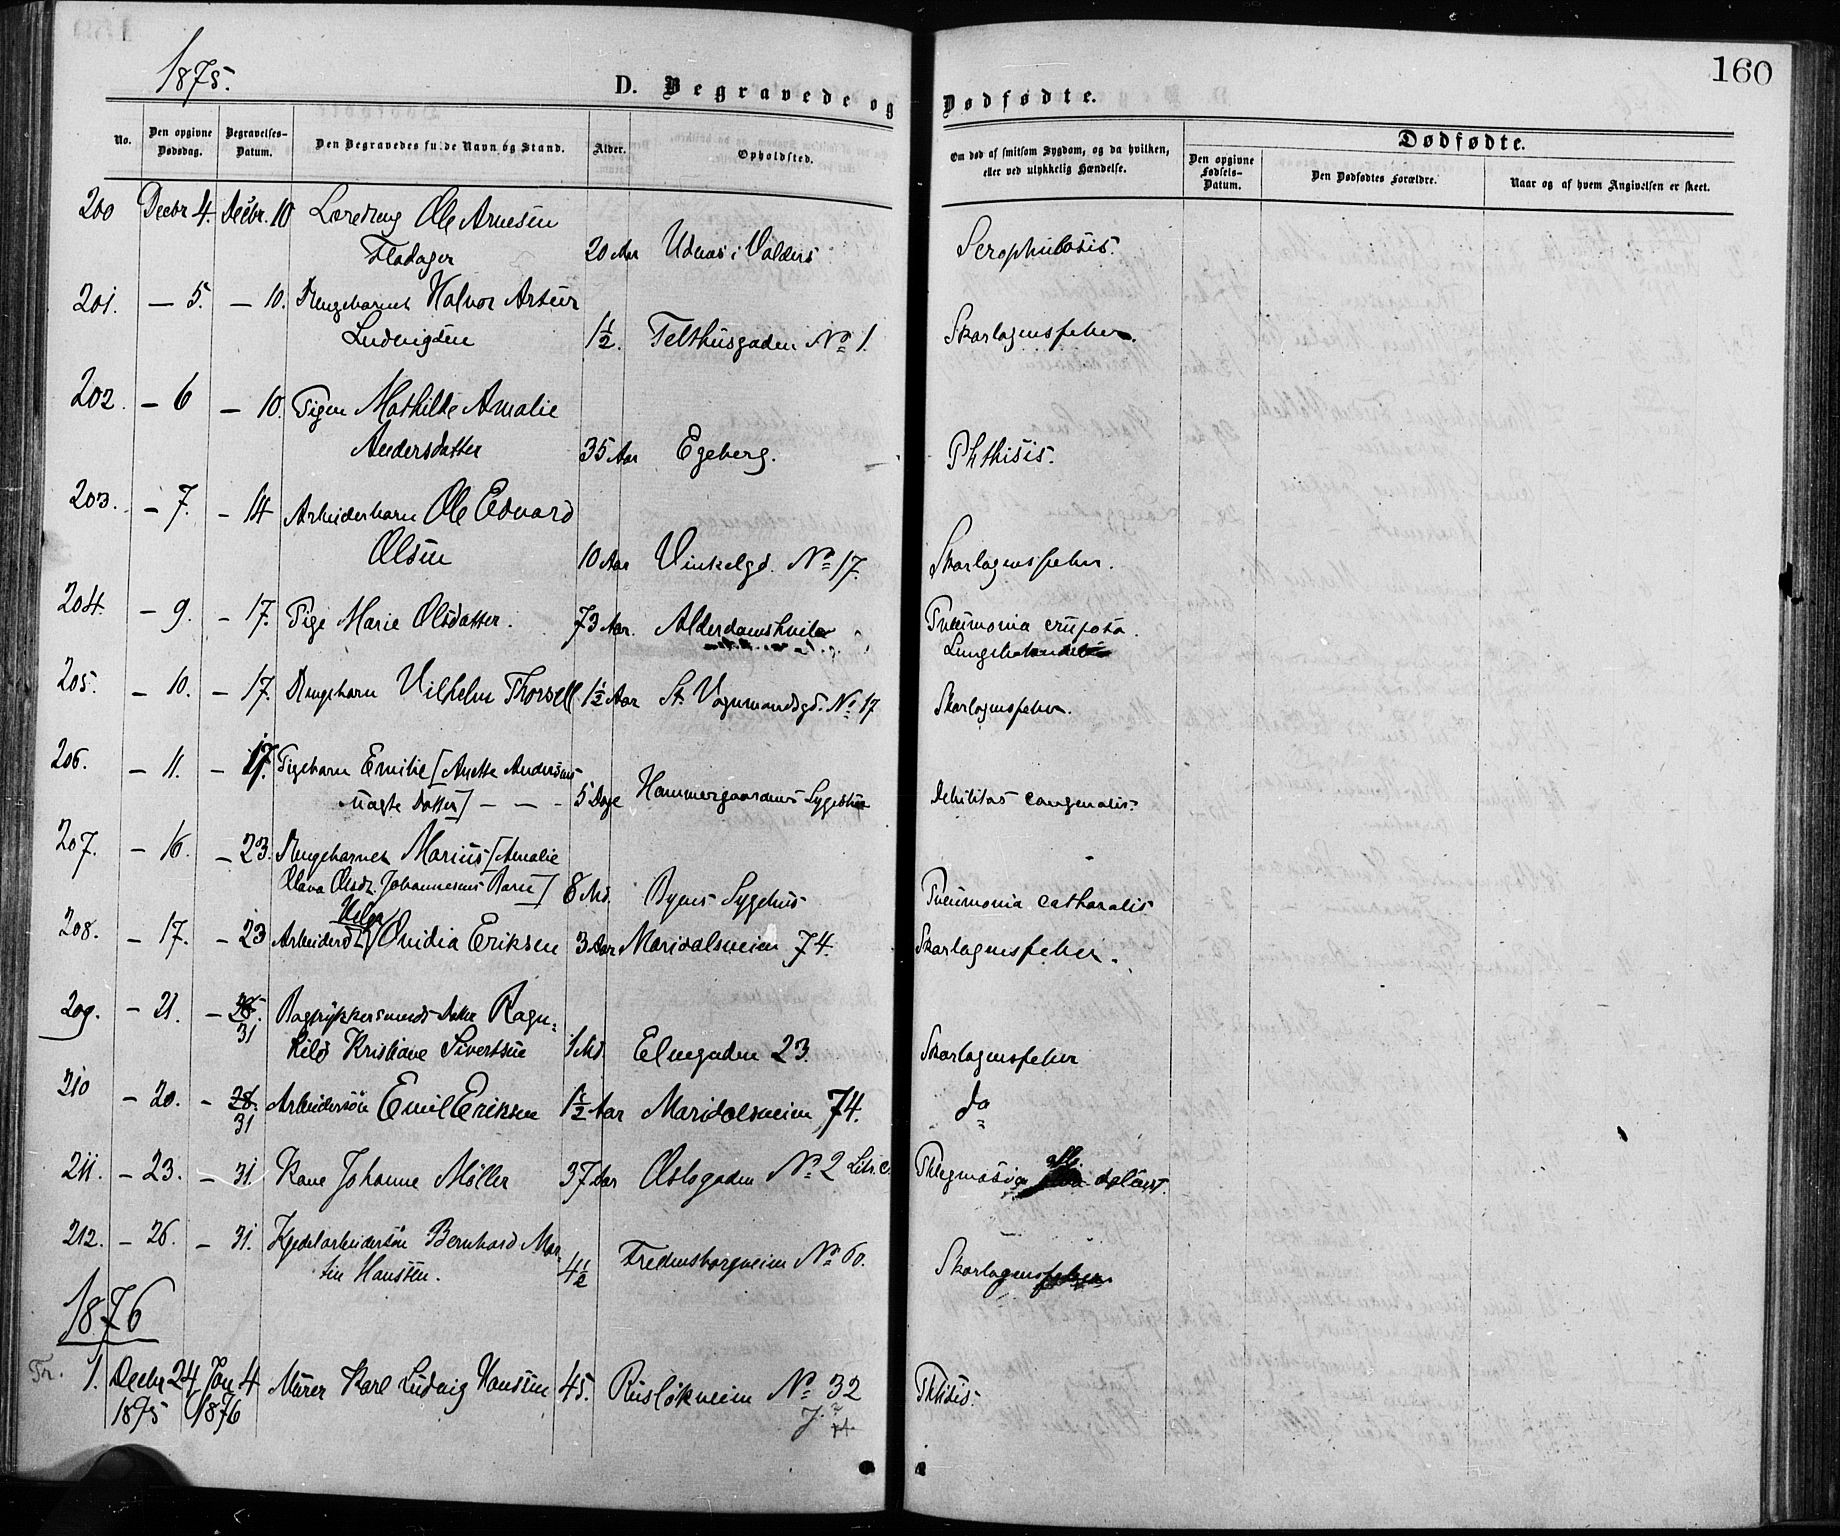 1875.
160
D. Begravede og Dødfødte.
No. Den opgivne Dødsdag. Begravelses-Datum. Den Begravedes fulde Navn og Stand. Alder. Opholdsted. Om død af smitsom Sygdom, og da hvilken, eller ved ulykkelig Hændelse. Dødfødte. Den opgivne Fødsels-Datum. Den Dødfødtes Forældre. Naar og af hvem Angivelsen er skeet.
200 Decbr 4. Decbr. 10 Læredreng Ole Arnesen
Fladager 20 Aar i Valders Scrophulosis.
201. — 5. — 10. Drengebarnet Halvor Artur
Ludvigsen 1½. Telthusgaden No 1. Skarlagensfeber.
202. — 6 — 10. Pigen Mathilde Amalie
Andersdatter 35 Aar Egeberg. Phthisis.
203. — 7. — 14 Arbeiderbarn Ole Edvard
Olsen 10 Aar Vinkelgd. No 17. Skarlagensfeber.
204. — 9. — 17. Pige Marie Olsdatter. 73 Aar. Alderdomshvile Pneumonia cruposa.
205. — 10. — 17. Drengebarn Vilhelm Thorsell 1½ Aar St. Vognmandsgd. No 17 Skarlagensfeber.
206. — 11. — 17. Pigebarn Emilie [Anette Andersens
uægte Datter] — — - 5 Dage Hammergaardens Sygehus Debilitas congenalis.
207. — 16. — 23. Drengebarnet Marius [Amalie
Olava Olsdr. Johannesens Barn] 8 Md. Byens Sygehus Pneumonia catharalis
208. — 17. — 23 Arbeiderd. Ovidia Eriksen 3 Aar Maridalsveien 74. Skarlagensfeber.
209. — 21. — 28. 31 Bogtrykkersvends Datter Ragn=
hild Kristiane Sivertsen 1 Md. Elvegaden 23 Skarlagensfeber
210 — 20. — 28. 31 Arbeidersøn Emil Eriksen 1½ Aar Maridalsveien 74. do
211. — 23. — 31. Kone Johanne Møller 37 Aar Oslogaden No 2 Litr. c. Phlegmasia alb. dolens.
212. — 26. — 31. Kjedelarbeidersøn Bernhard Mar
tin Hansen. 4½ Fredensborgveien No 60. Skarlagensfeber
1876
Fr. 1. Decbr 24 Jan 4 Murer Karl Ludvig Hansen 45. Rusløkveien No 32 Phtisis.
1875 1876